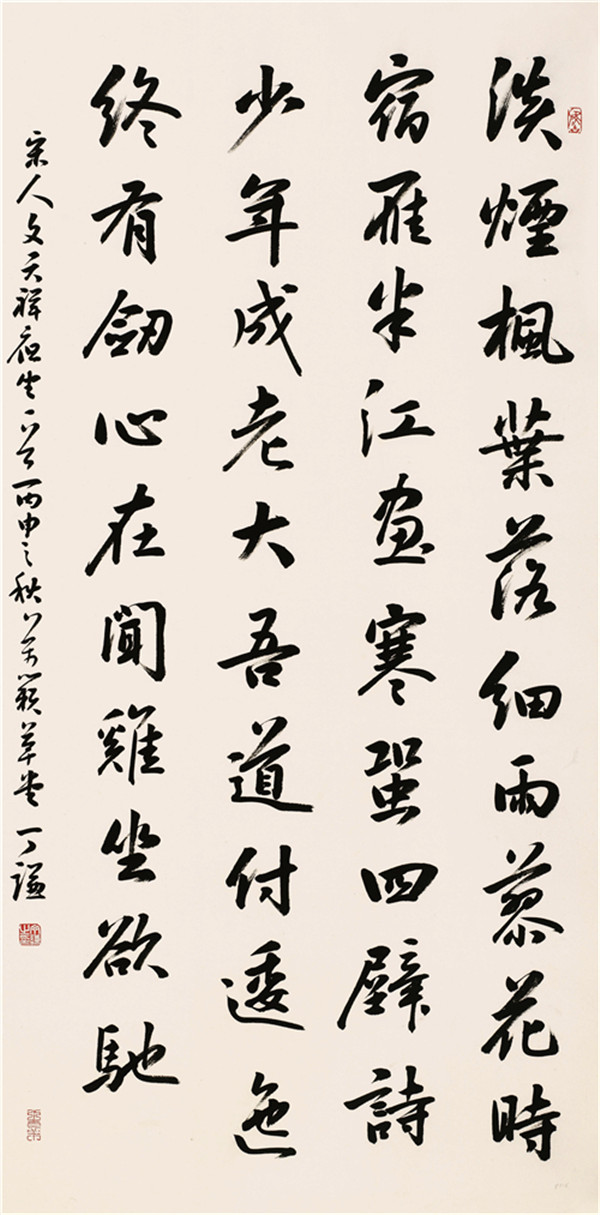 淡煙楓葉落細雨蓼花時
宿雁半江畫寒蛩四壁詩
少年成老大吾道付逶迤
終有劒心在聞雞坐欲馳
宋人文天祥夜坐一首丙申之秋於萬籟草堂丁謙